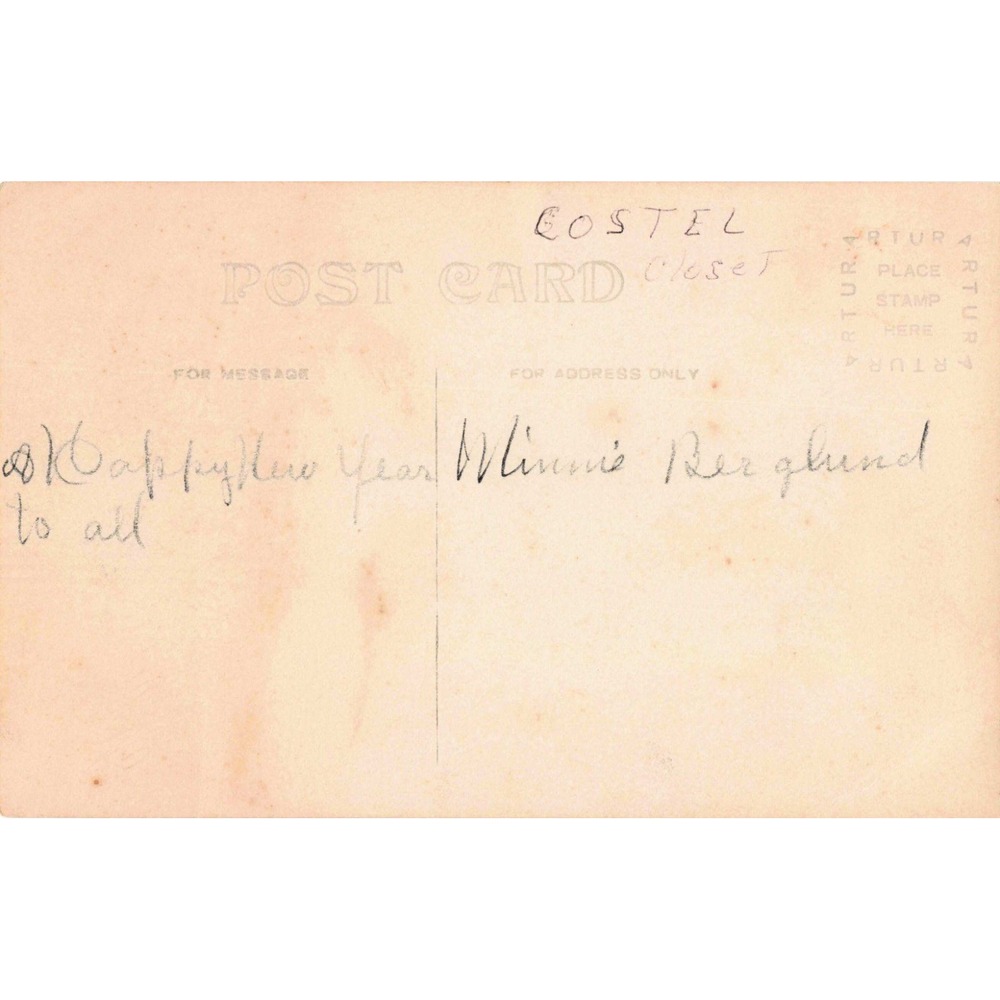 COSTEL
Closet
POST CARD
ARTURA
PLACE
STAMP
HERE
ARTURA
ARTURA
ARTURA
FOR MESSAGE
FOR ADDRESS ONLY
Happy New Year
to all
Minnie Berglund